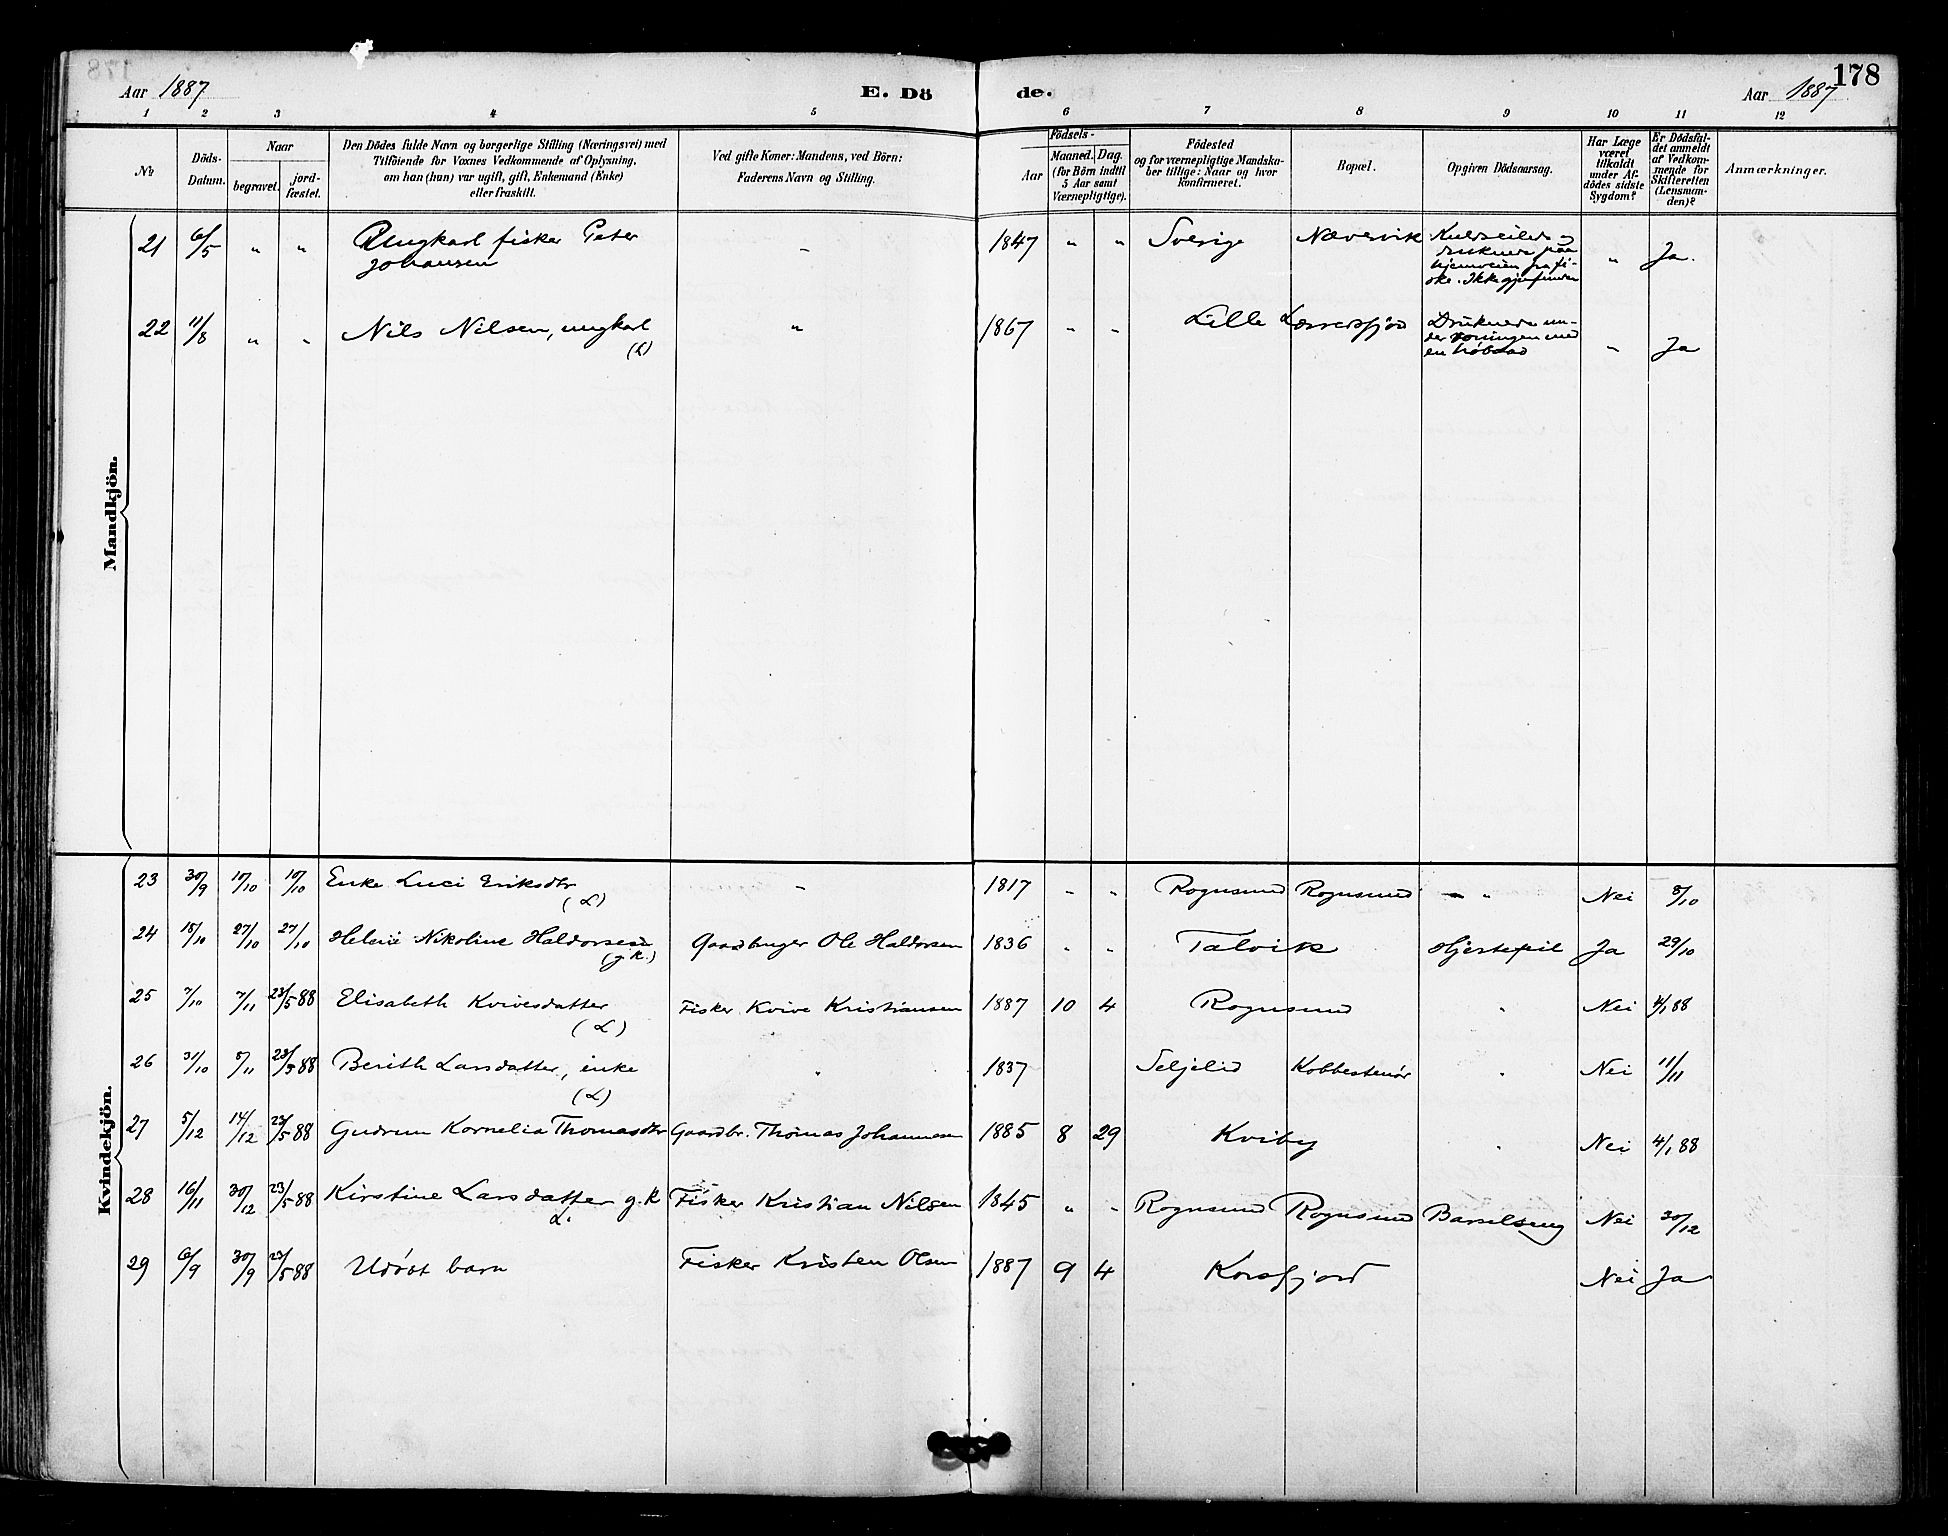 178
Aar 1887 E. Dö de. Aar 1887
1 2 3 4 5 6 7 8 9 10 11 12
№
Döds-Datum.
Naar
begravet.
jord-fæstet.
Den Dödes fulde Navn og borgerlige Stilling (Næringsvei) med
Tilföiende for Voxnes Vedkommende af Oplysning,
om han (hun) var ugift, gift, Enkemand (Enke)
eller fraskilt.
Ved gifte Koner: Mandens, ved Börn:
Faderens Navn og Stilling.
Födsels-
Aar
Maaned. Dag.
(for Börn indtil
5 Aar samt
Værnepligtige).
Födested
og for værnepligtige Mandska-
ber tillige: Naar og hvor
konfirmeret.
Bopæl.
Opgiven Dödsaarsag.
Har Læge
været
tilkaldt
under Af-
dödes sidste
Sygdom?
Er Dödsfal-
det anmeldt
af Vedkom-
mende for
Skifteretten
(Lensman-
den)?
Anmærkninger.
Mandkjön.
21 6/5 " " Ungkarl fisker Peter
Johansen
– 1847 " " Sverige Nævervik Kuldseilede og
druknede paa
hjemveien fra fi-
ske. Ikke gjenfunden
" Ja.
22 11/8 " " Nils Nilsen, ungkarl
(L)
" 1867 " " Lille Lerresfjord Druknede un-
der roningen med
en høbaad
" Ja
Kvindekjön.
23 30/9 10/10 10/10 Enke Luci Eriksdtr
(L)
– 1817 " " Rognsund Rognsund – " Nei 8/10
24 18/10 27/10 27/10 Helene Nikoline Haldorsen
(g.k.)
Gaardbruger Ole Haldorsen 1836 " " Talvik Hjertefeil Ja 29/10
25 7/10 7/11 23/5 88 Elisabeth Kvivesdatter
(L)
Fisker Kvive Kristiansen 1887 10 4 Rognsund " Nei 4/1 88
26 31/10 8/11 23/5 88 Berith Larsdatter, enke
(L)
" 1837 Seljelid Kobbestenør " Nei 11/11
27 5/12 14/12 23/5 88 Gudrun Kornelia Thomasdtr Gaardbr. Thomas Johannesen 1885 8 29 Kviby " Nei 4/1 88
28 16/11 30/12 23/5 88 Kirstine Larsdatter g.k
L.
Fisker Kristian Nilsen 1845 " " Rognsund Rognsund Barselseng Nei 30/12
29 6/9 30/9 23/5 88 Udøbt barn Fisker Kristen Olsen 1887 9 4 Korsfjord Nei Ja